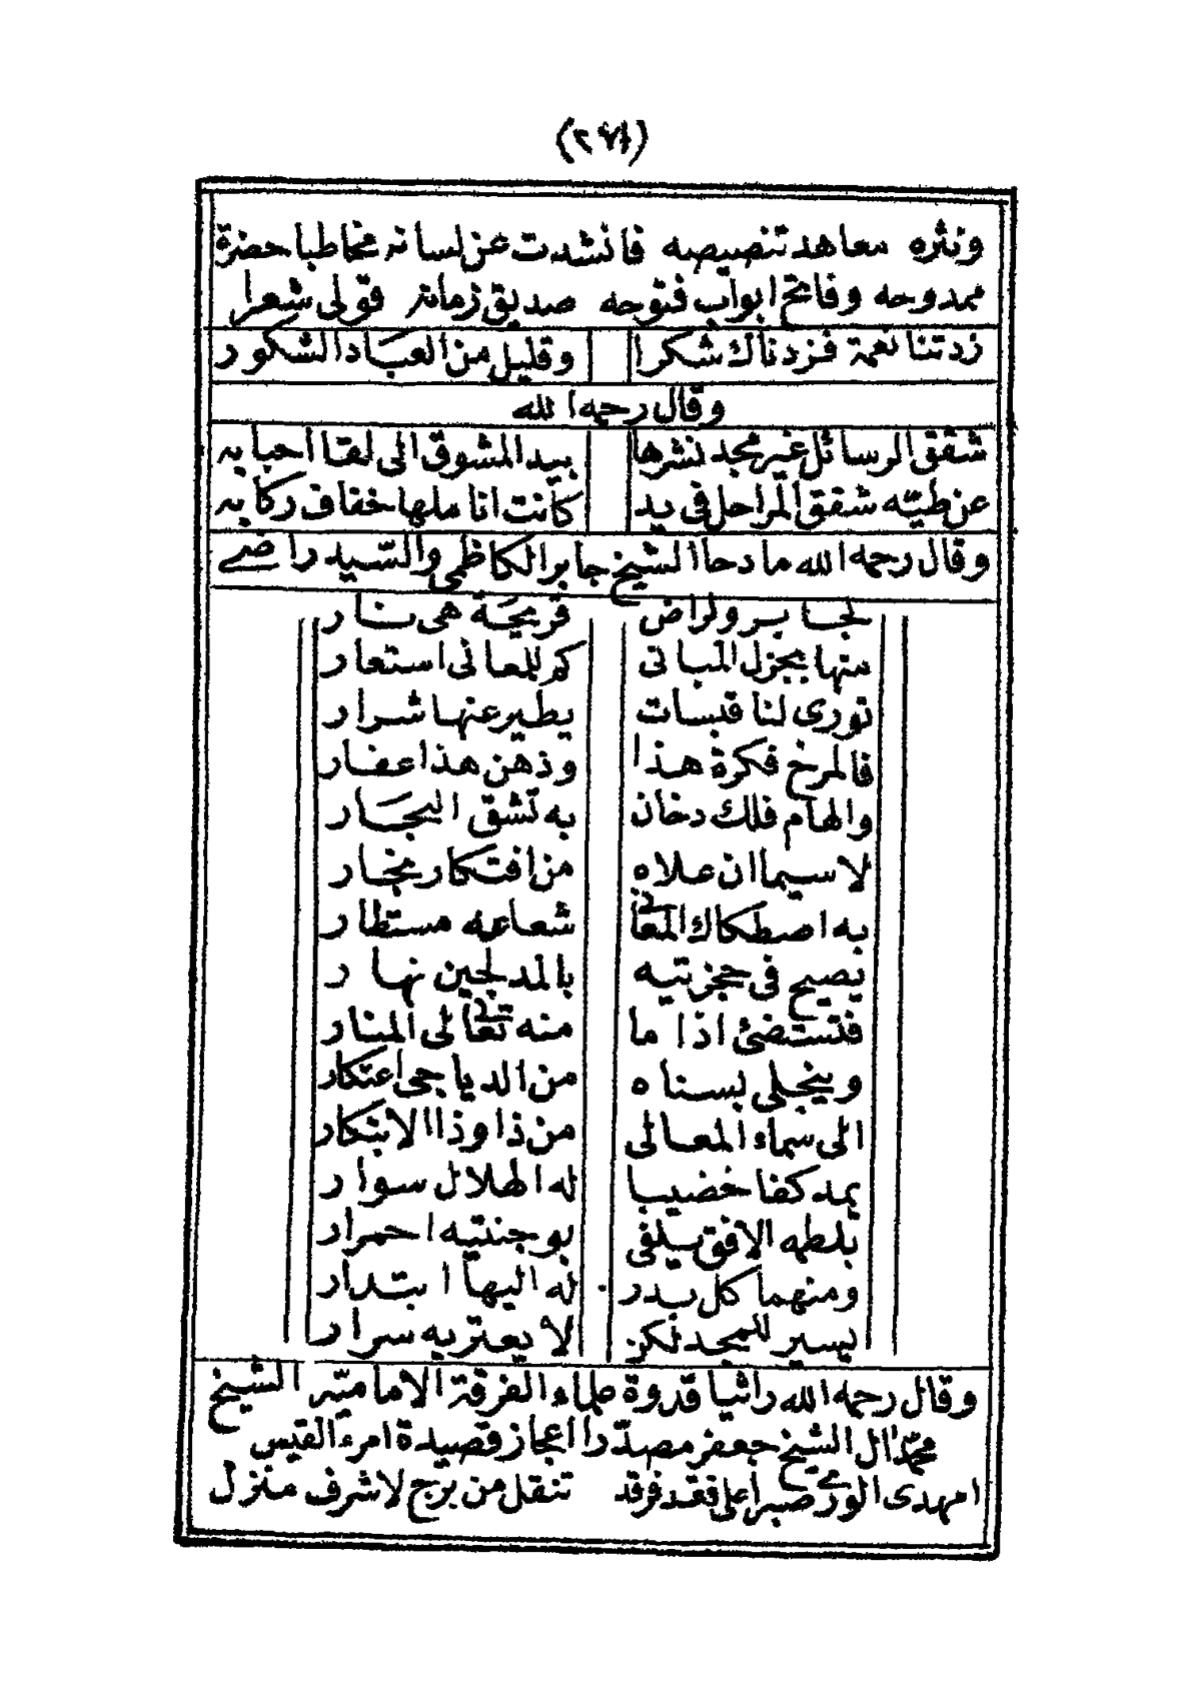 ونثره معاهد تنصيصه فانشدت عن لسانه مخاطبا حضرة
ممدوحه وفاتح ابواب فتوحه صديق زمانه قولى شعرا
زدتنا نعمة فزدناك شكرا وقليل من العباد الشكور
وقال رحمه الله
شقق الرسائل غير مجد نشرها بيد المشوق الى لقا احبابه
عن طيّه شقق المراحل فى يد كانت اناملها خفاف ركابه
وقال رحمه الله مادحا الشيخ جابر الكاظمى والسّيد راضے
لجابر ولراض قريحة هى نار
منها بجزل المبانى كم للمعانى استعار
تورى لنا قبسات يطير عنها شرار
فالمرخ فكرة هذا وذهن هذا عفار
والهام فلك دخان به تشق البحار
لا سيما ان علاه من افتكار بخار
به اصطكاك المعانى شعاعه مستطار
يصيح فى حجزتيه بالمدلجين نهار
فتستضئ اذا ما منه تعالى المنار
وينجلى بسناه من الدياجى اعتكار
الى سماء المعالى من ذا وذا الابتكار
يمد كفا خضيبا له الهلال سوار
بلطمه الافق يلفى بوجنتيه احمرار
ومنهما كل بدر له اليها ابتدار
يسير للمجد لكن لا يعتريه سرار
وقال رحمه الله راثيا قدوة علماء الفرقة الاماميّه الشيخ
محمّد ال الشيخ جعفر مصدّرا اعجاز قصيدة امرء القيس
امهدى الورى صبرا على فقد فرقد تنقل من برج لاشرف منزل